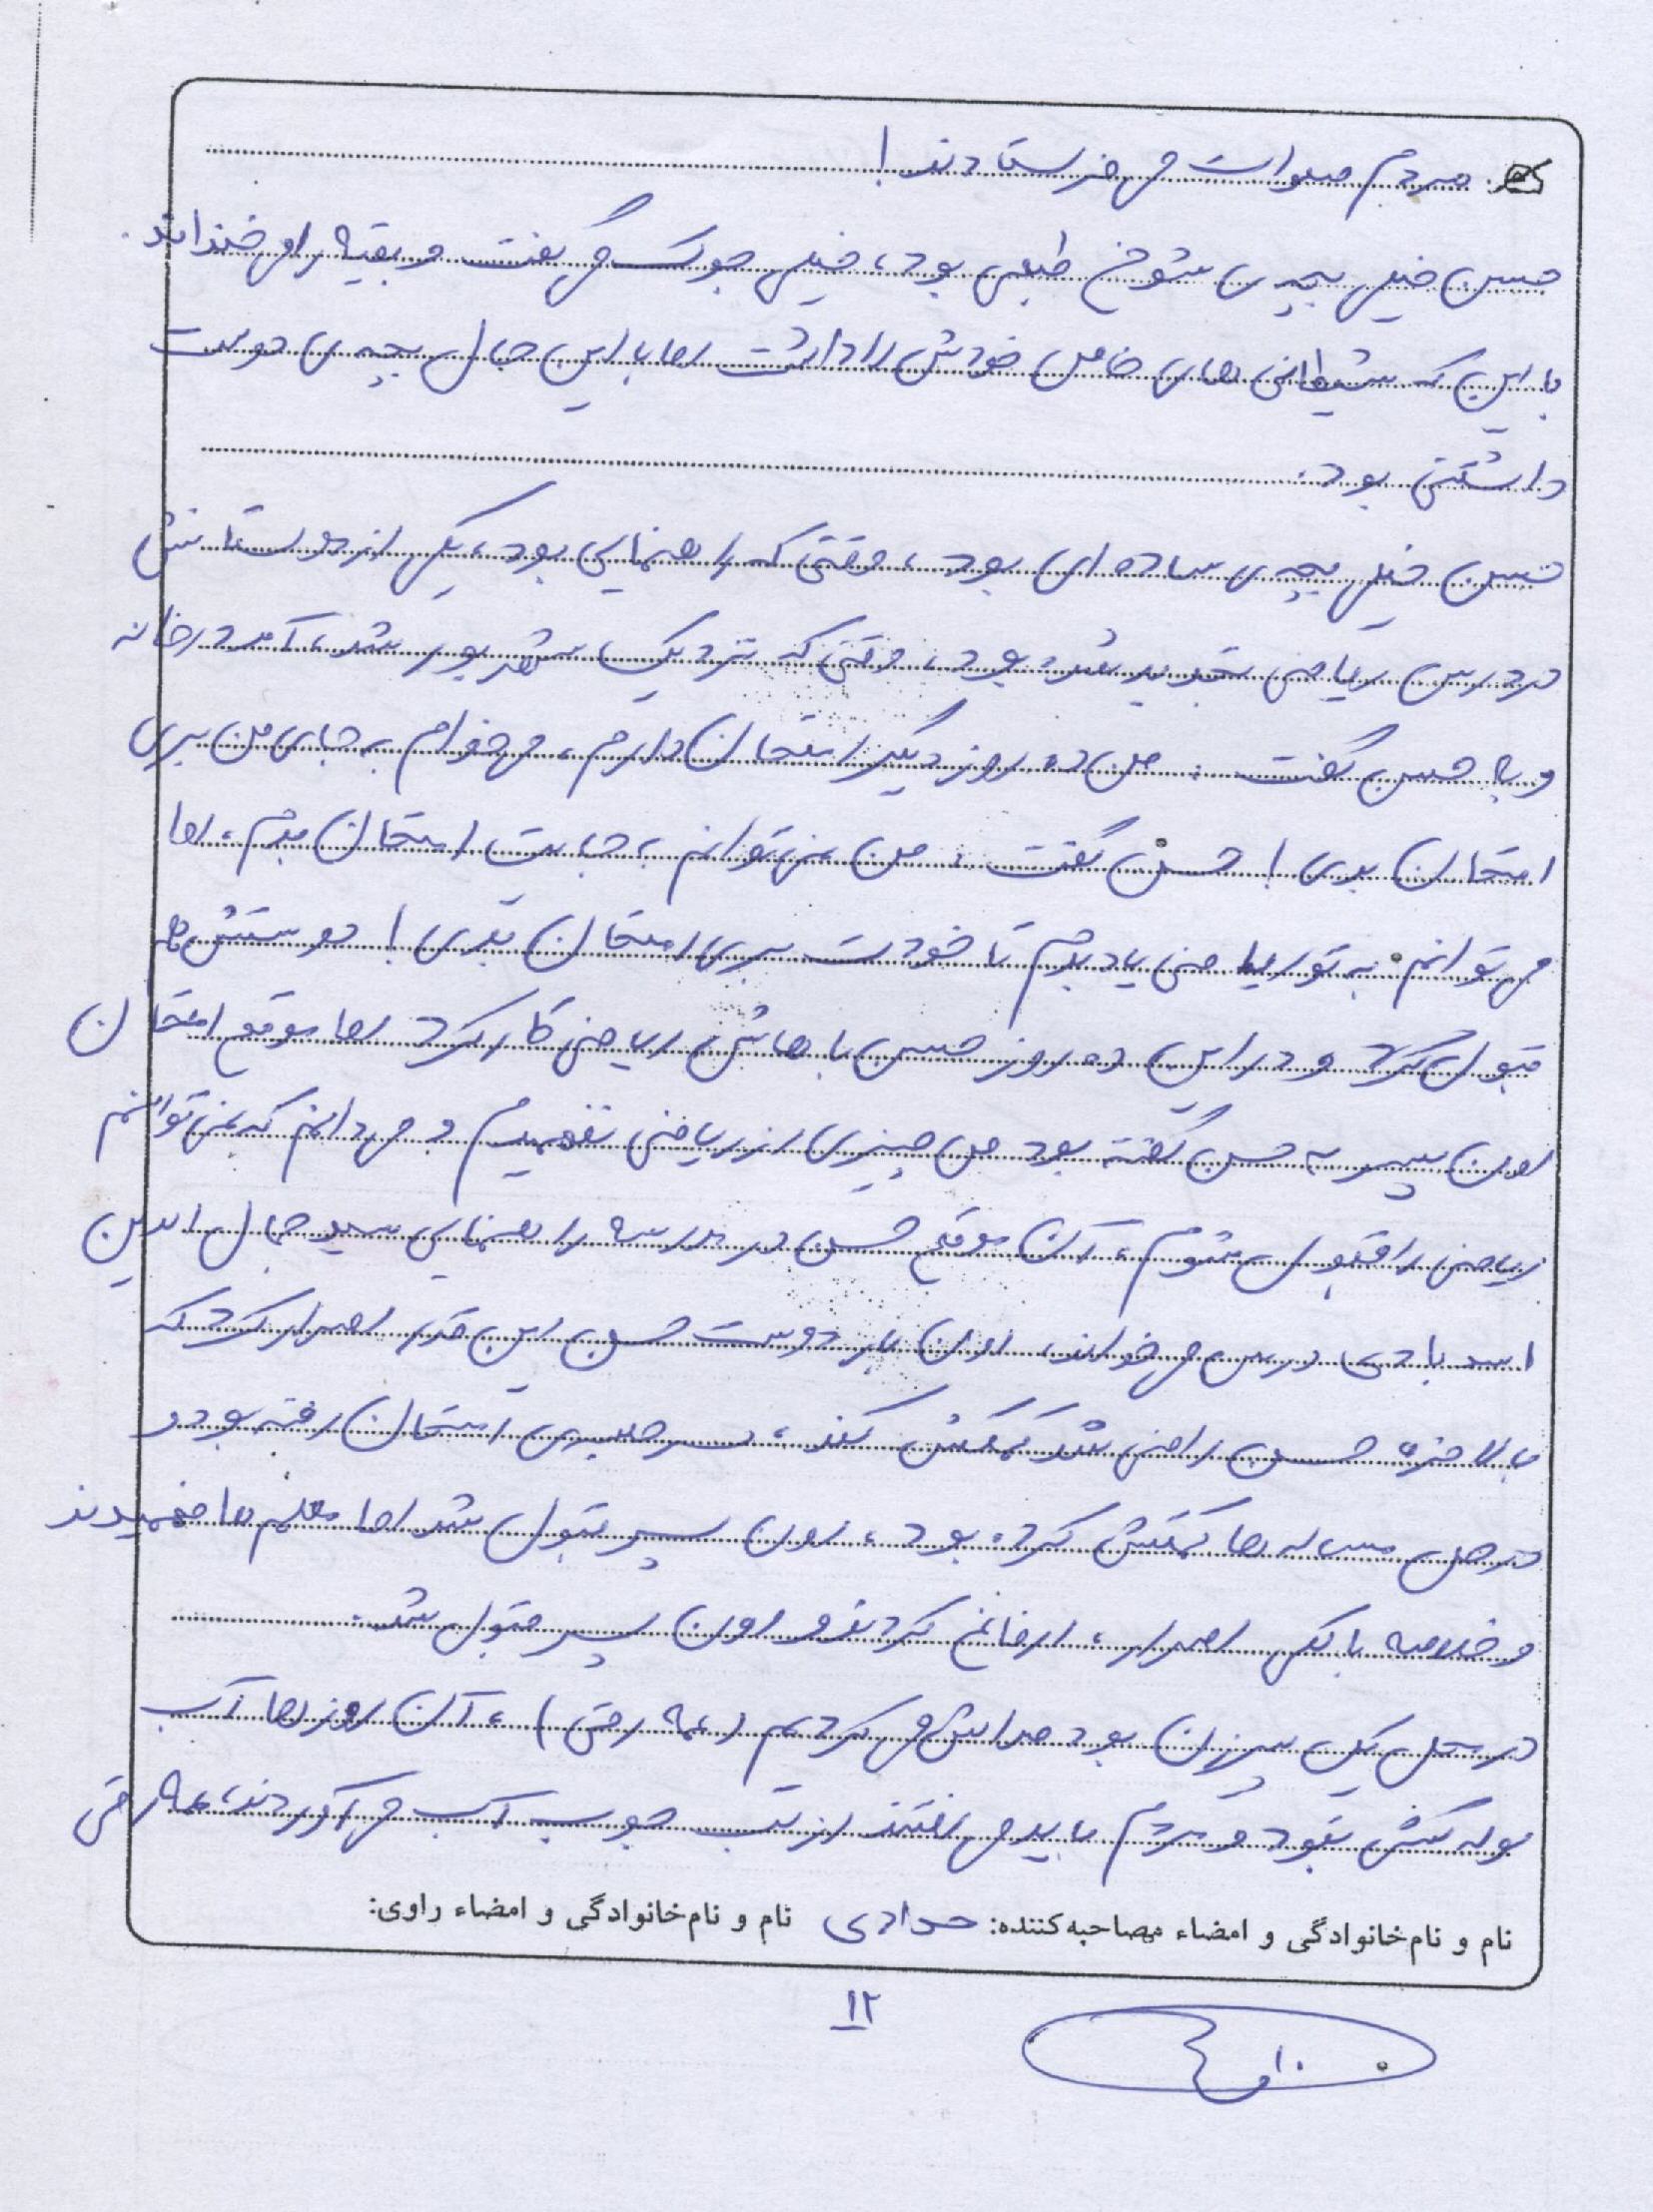 مردم صلوات می فرستادند!
حسن خیلی بچه ی شوخ طبعی بود، خیلی جوک می گفت و بقیه را می خنداند.
با این که شیطانی های خاص خودش را داشت اما با این حال بچه ی دوست
داشتنی بود.
حسن خیلی بچه ی ساده ای بود، وقتی که راهنمایی بود، یکی از دوستانش
در درس ریاضی تجدید شده بود، وقتی که نزدیک شهریور شد، آمد در خانه
و به حسن گفت: من ده روز دیگر امتحان دارم، می خوام به جای من بری
امتحان بدی! حسن گفت: من نمی توانم به جایت امتحان بدم، اما
می توانم به تو ریاضی یاد بدم تا خودت بری امتحان بدی! دوستش هم
قبول کرد و در این ده روز حسن باهاش ریاضی کار کرد اما موقع امتحان
اون پسر به حسن گفته بود من چیزی از ریاضی نفهمیدم و می دانم که نمی توانم
ریاضی را قبول شوم، آن موقع حسن در مدرسه راهنمایی سید جمال الدین
اسدبادی درس می خواند، اون بار دوست حسن این قدر اصرار کرد که
بالاخره حسن راضی شد کمکش کند، سر جلسه ی امتحان رفته بود و
در حل مساله ها کمکش کرده بود، اون پسر قبول شد اما معلم ها فهمیدند
و خلاصه با کلی اصرار، ارفاغم کردند و اون پسر قبول شد.
در محل یک پیرزن بود صدایش می کردیم (عمه رقی)، آن روزها آب
لوله کشی نبود و مردم باید می رفتند از لب جوب آب می آوردند، عمه رقی
نام و نام خانوادگی و امضاء مصاحبه کننده: حدادی نام و نام خانوادگی و امضاء راوی:
۱۲